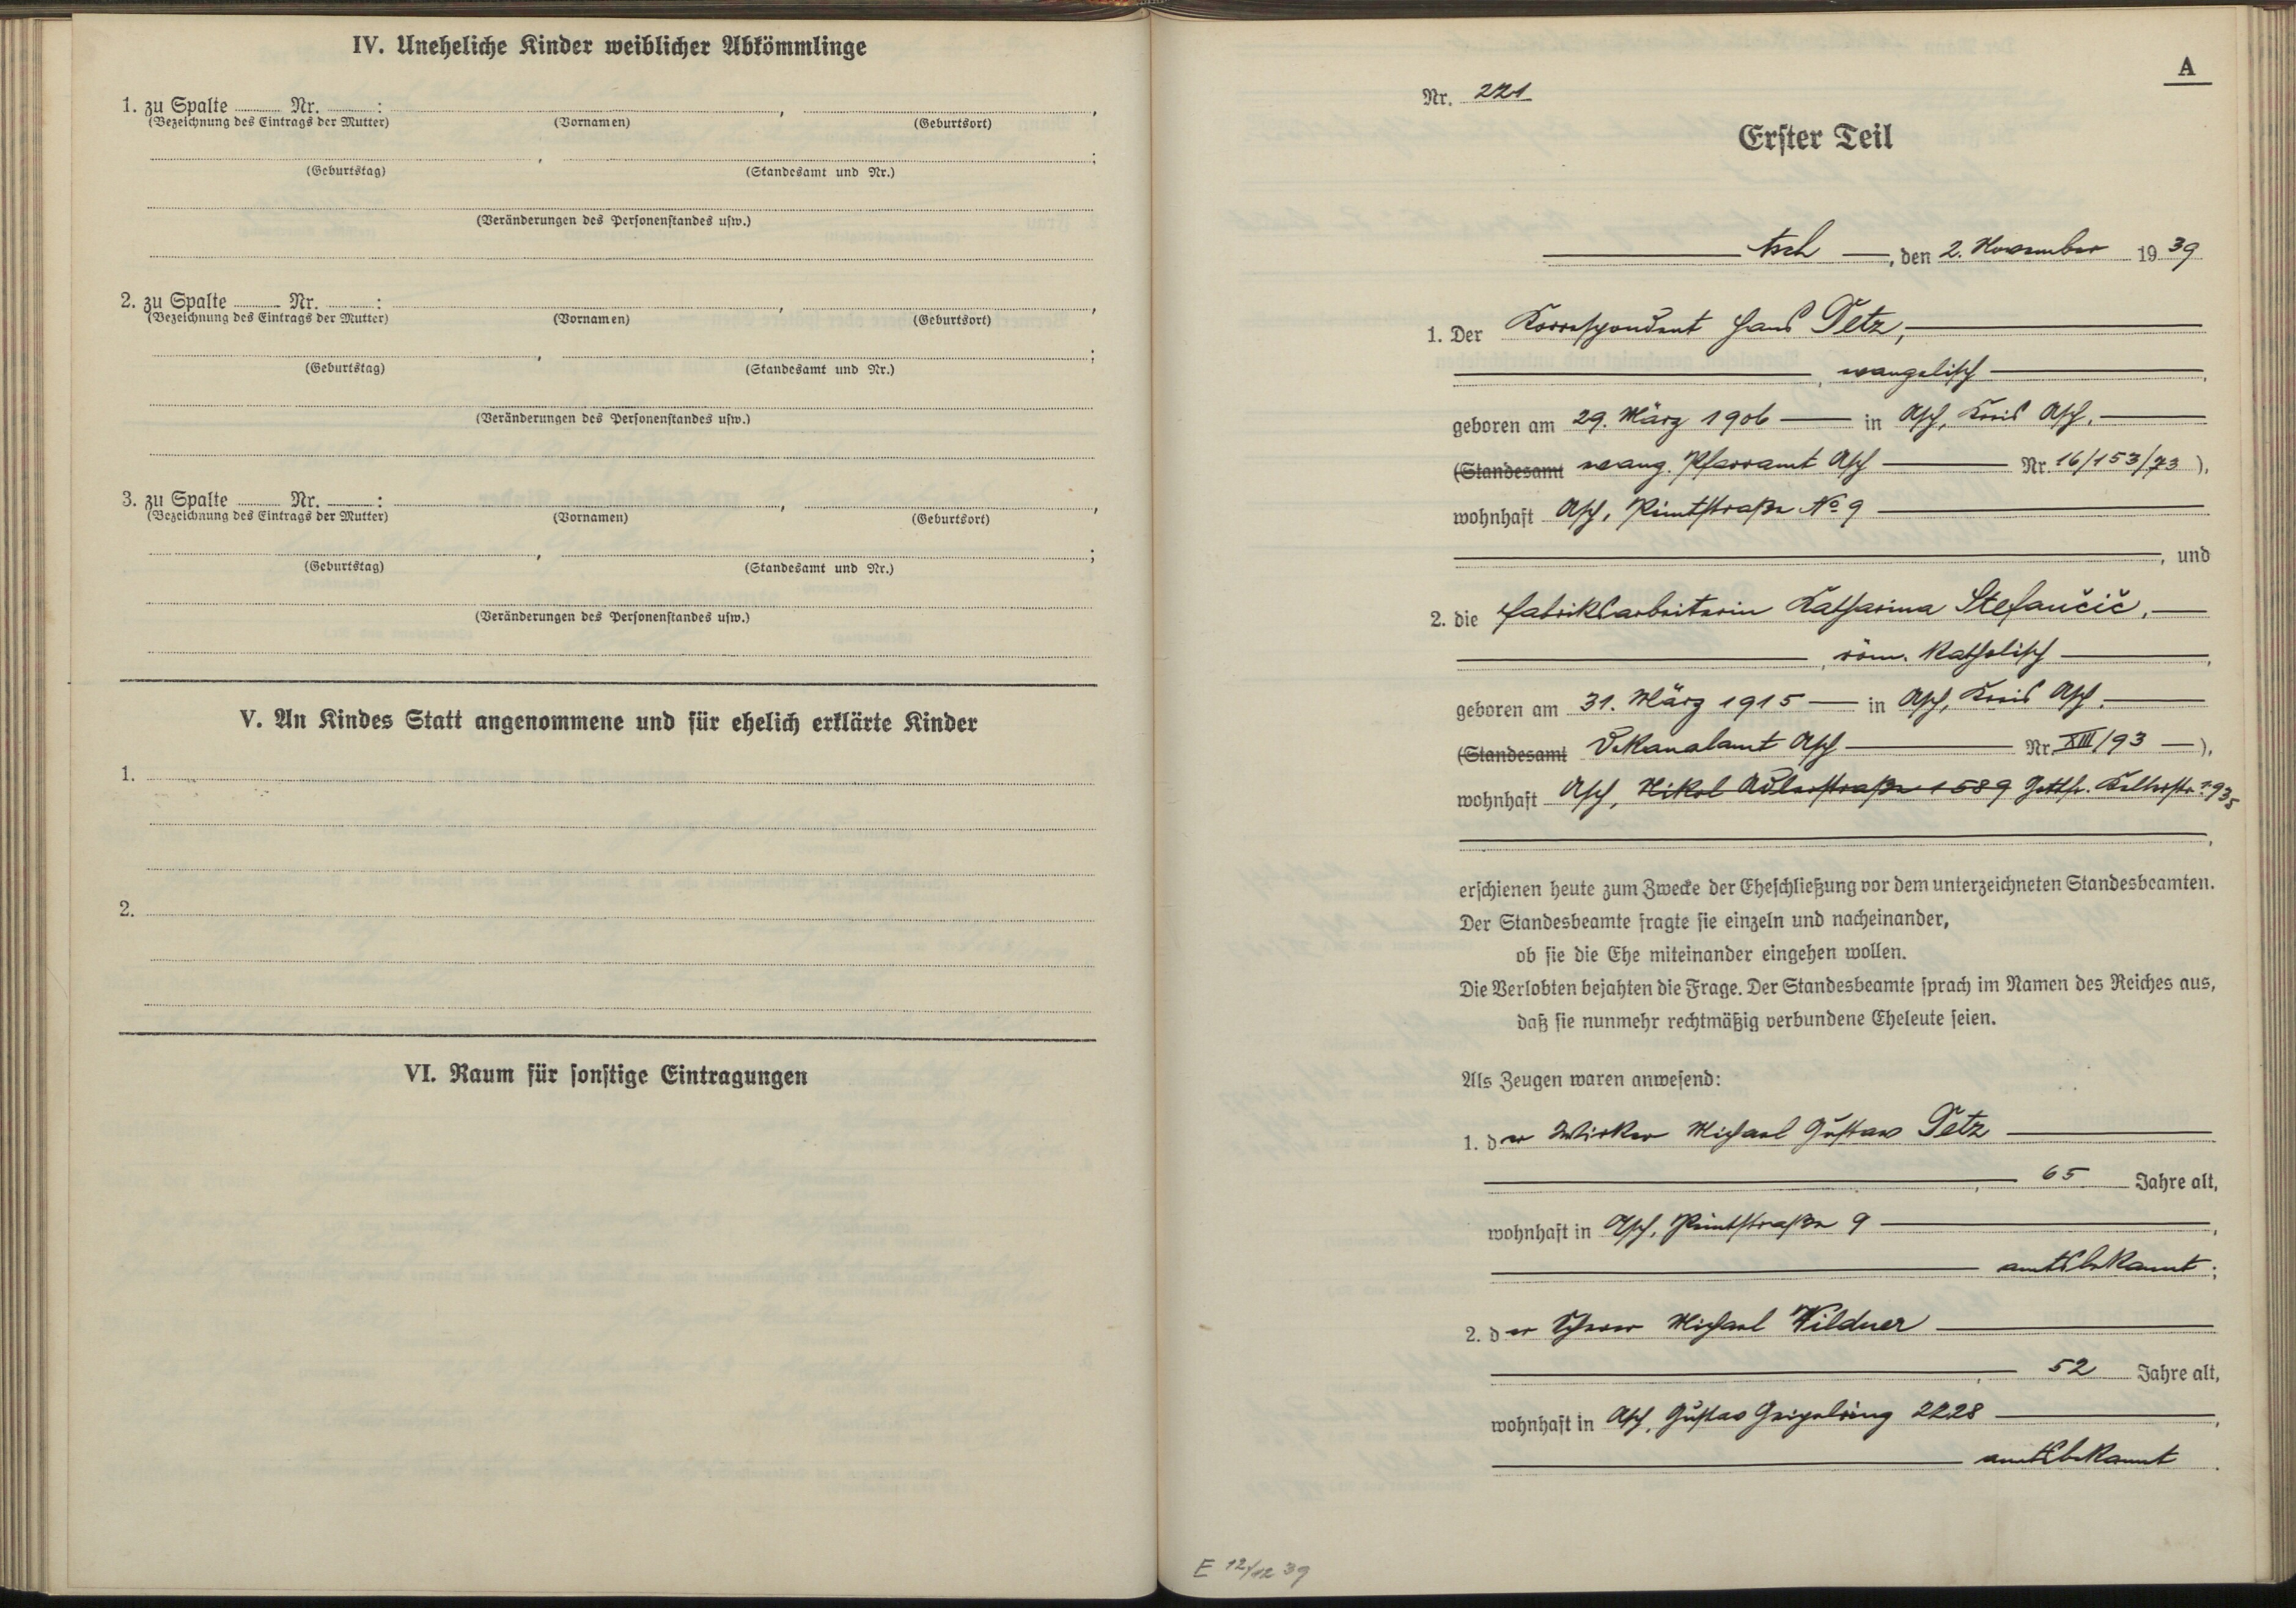 IV. Uneheliche Kinder weiblicher Abkömmlinge
1. zu Spalte Nr. : , ,
(Bezeichnung des Eintrags der Mutter) (Vornamen) (Geburtsort)
, ;
(Geburtstag) (Standesamt und Nr.)
(Veränderungen des Personenstandes usw.)
2. zu Spalte Nr. : , ,
(Bezeichnung des Eintrags der Mutter) (Vornamen) (Geburtsort)
, ;
(Geburtstag) (Standesamt und Nr.)
(Veränderungen des Personenstandes usw.)
3. zu Spalte Nr. : , ,
(Bezeichnung des Eintrags der Mutter) (Vornamen) (Geburtsort)
, ;
(Geburtstag) (Standesamt und Nr.)
(Veränderungen des Personenstandes usw.)
V. An Kindes Statt angenommene und für ehelich erklärte Kinder
1.
2.
VI. Raum für sonstige Eintragungen
A
Nr. 221
Erster Teil
Asch, den 2. November 1939
1. Der Korrespondent Hans Petz,
, evangelisch,
geboren am 29. März 1906 in Asch, Kreis Asch.
(Standesamt evang. Pfarramt Asch Nr. 16/153/73),
wohnhaft Asch, Rüntstraße No 9
, und
2. die Fabriksarbeiterin Katharina Stefančič,
, röm. katholisch,
geboren am 31. März 1915 in Asch, Kreis Asch.
(Standesamt Dekanalamt Asch Nr. XIII/93),
wohnhaft Asch, Nikol Adlerstraße 1589 Gottfr. Kellerstr. 1935
,
erschienen heute zum Zwecke der Eheschließung vor dem unterzeichneten Standesbeamten.
Der Standesbeamte fragte sie einzeln und nacheinander,
ob sie die Ehe miteinander eingehen wollen.
Die Verlobten bejahten die Frage. Der Standesbeamte sprach im Namen des Reiches aus,
daß sie nunmehr rechtmäßig verbundene Eheleute seien.
Als Zeugen waren anwesend:
1. der Wirker Michael Gustav Petz
, 65 Jahre alt,
wohnhaft in Asch, Rüntstraße 9,
amtsbekannt;
2. der Scherer Michael Wildner
, 52 Jahre alt,
wohnhaft in Asch, Gustav Geipelring 2228,
amtsbekannt.
E 12/12 39